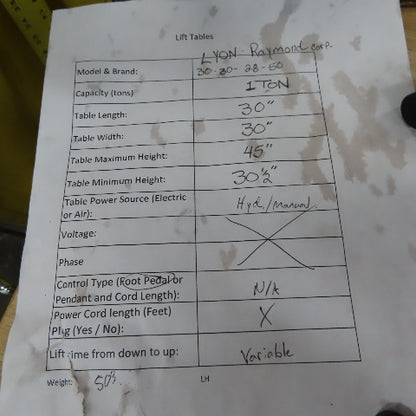 Lift Tables
LYON Raymond CORP.
Model & Brand: 30-30-28-50
Capacity (tons) 1 TON
Table Length: 30"
Table Width: 30"
Table Maximum Height: 45"
Table Minimum Height: 30½"
Table Power Source (Electric
or Air): Hyd./Manual.
Voltage:
Phase
Control Type (Foot Pedal or
Pendant and Cord Length): N/A
Power Cord length (Feet)
Plug (Yes / No): X
Lift time from down to up: Variable
Weight:
LH